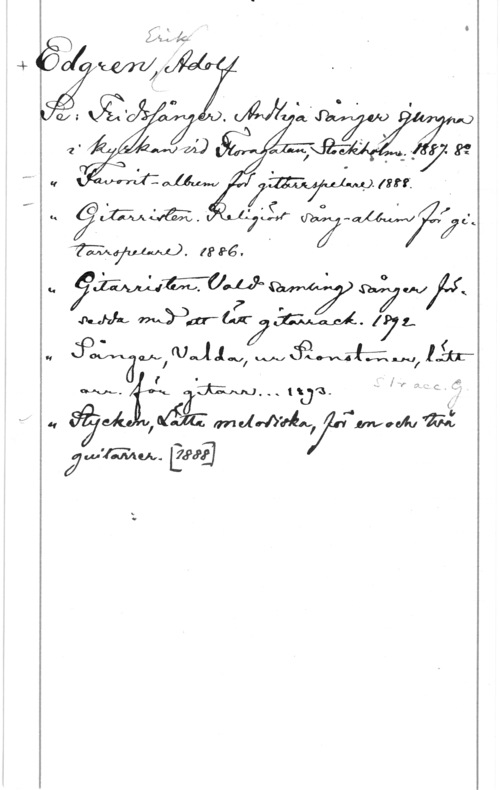 Erik
+ Edgren, Adolf
Se: Fridsfånger. Andliga sånger sjungna
i kyrkan vid Floragatan, Stockholm. 1887. 8º
" Favorit-album för gitarrspelare. 1888.
" Gitarristen. Religiöst sång-album för gi-
tarrspelare. 1886.
" Gitarristen. Vald samling sånger för-
sedda med ett lätt gitarrack. 1892
" Sånger, Valda, ur Pionstenen, lätt
arr. för gitarr... 1893.
" Stycken, Lätta melodiska, för en och två
guitarrer. [1888]